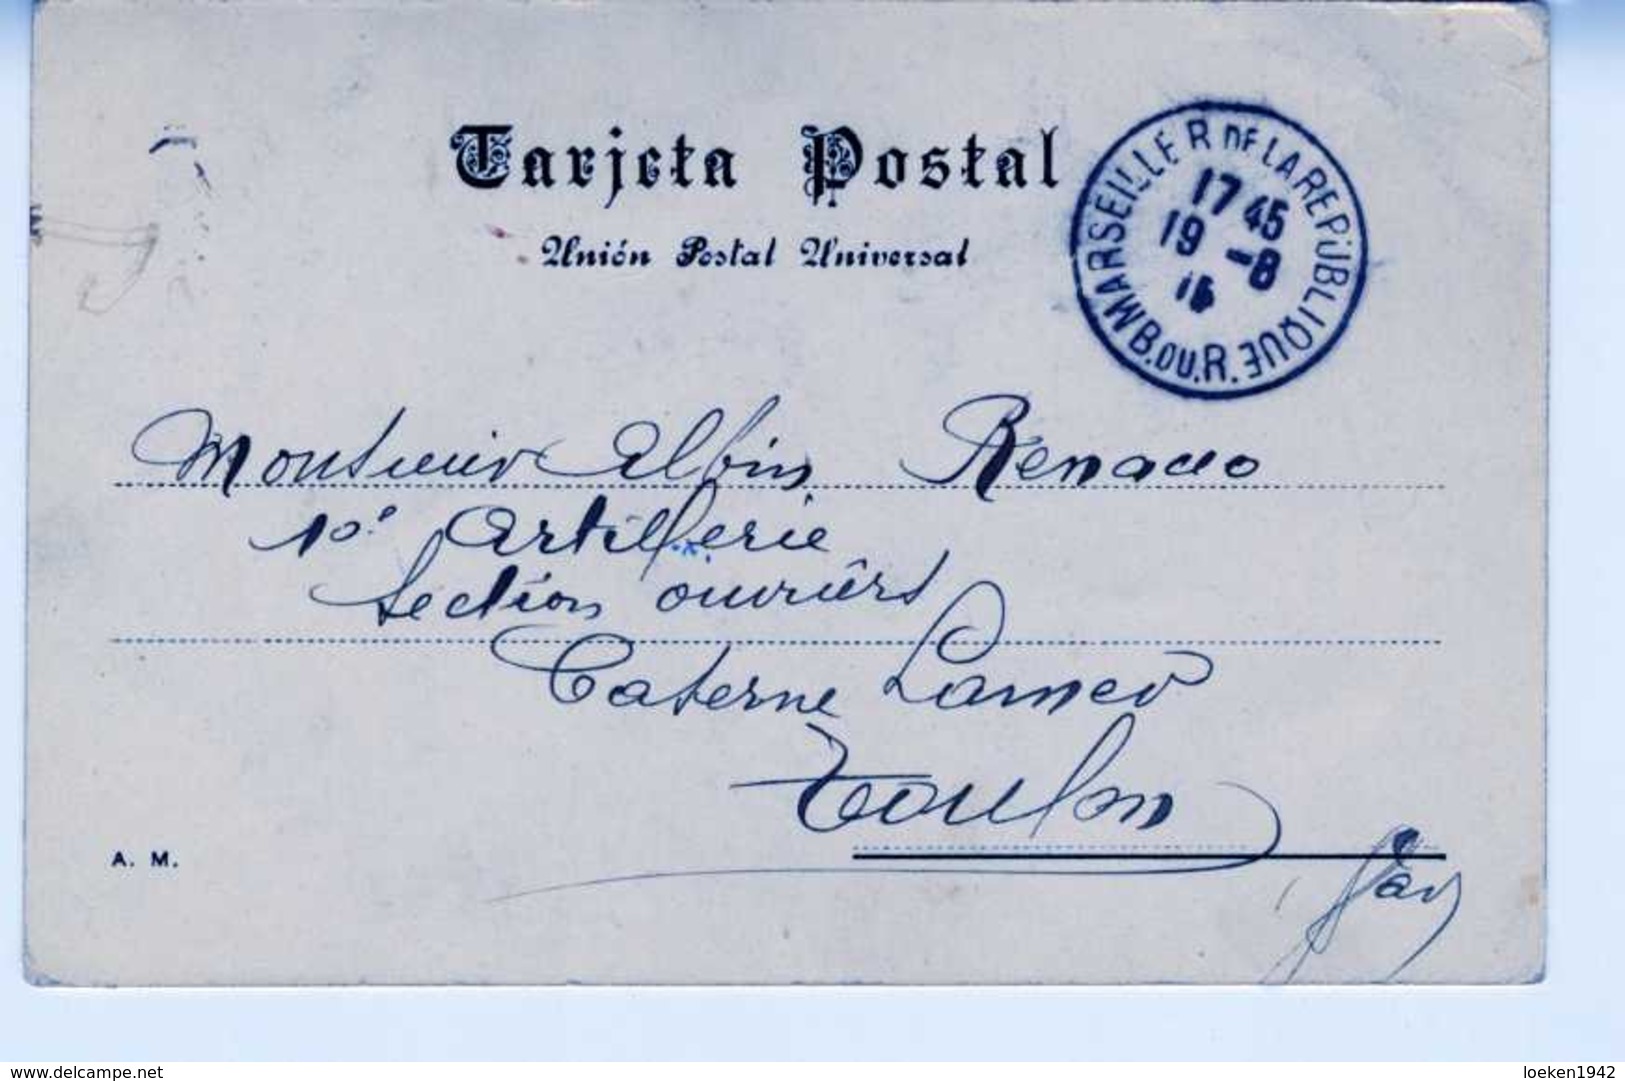 Tarjeta Postal
Unión Postal Universal
MARSEILLE R DE LA REPUBLIQUE
17 45
19 -8
B. DU. R.
Monsieur Albin Renaud
10e Artillerie
Section ouvriers
Caserne Lamer
Toulon
Var
A. M.
www.delcampe.net
loeken1942